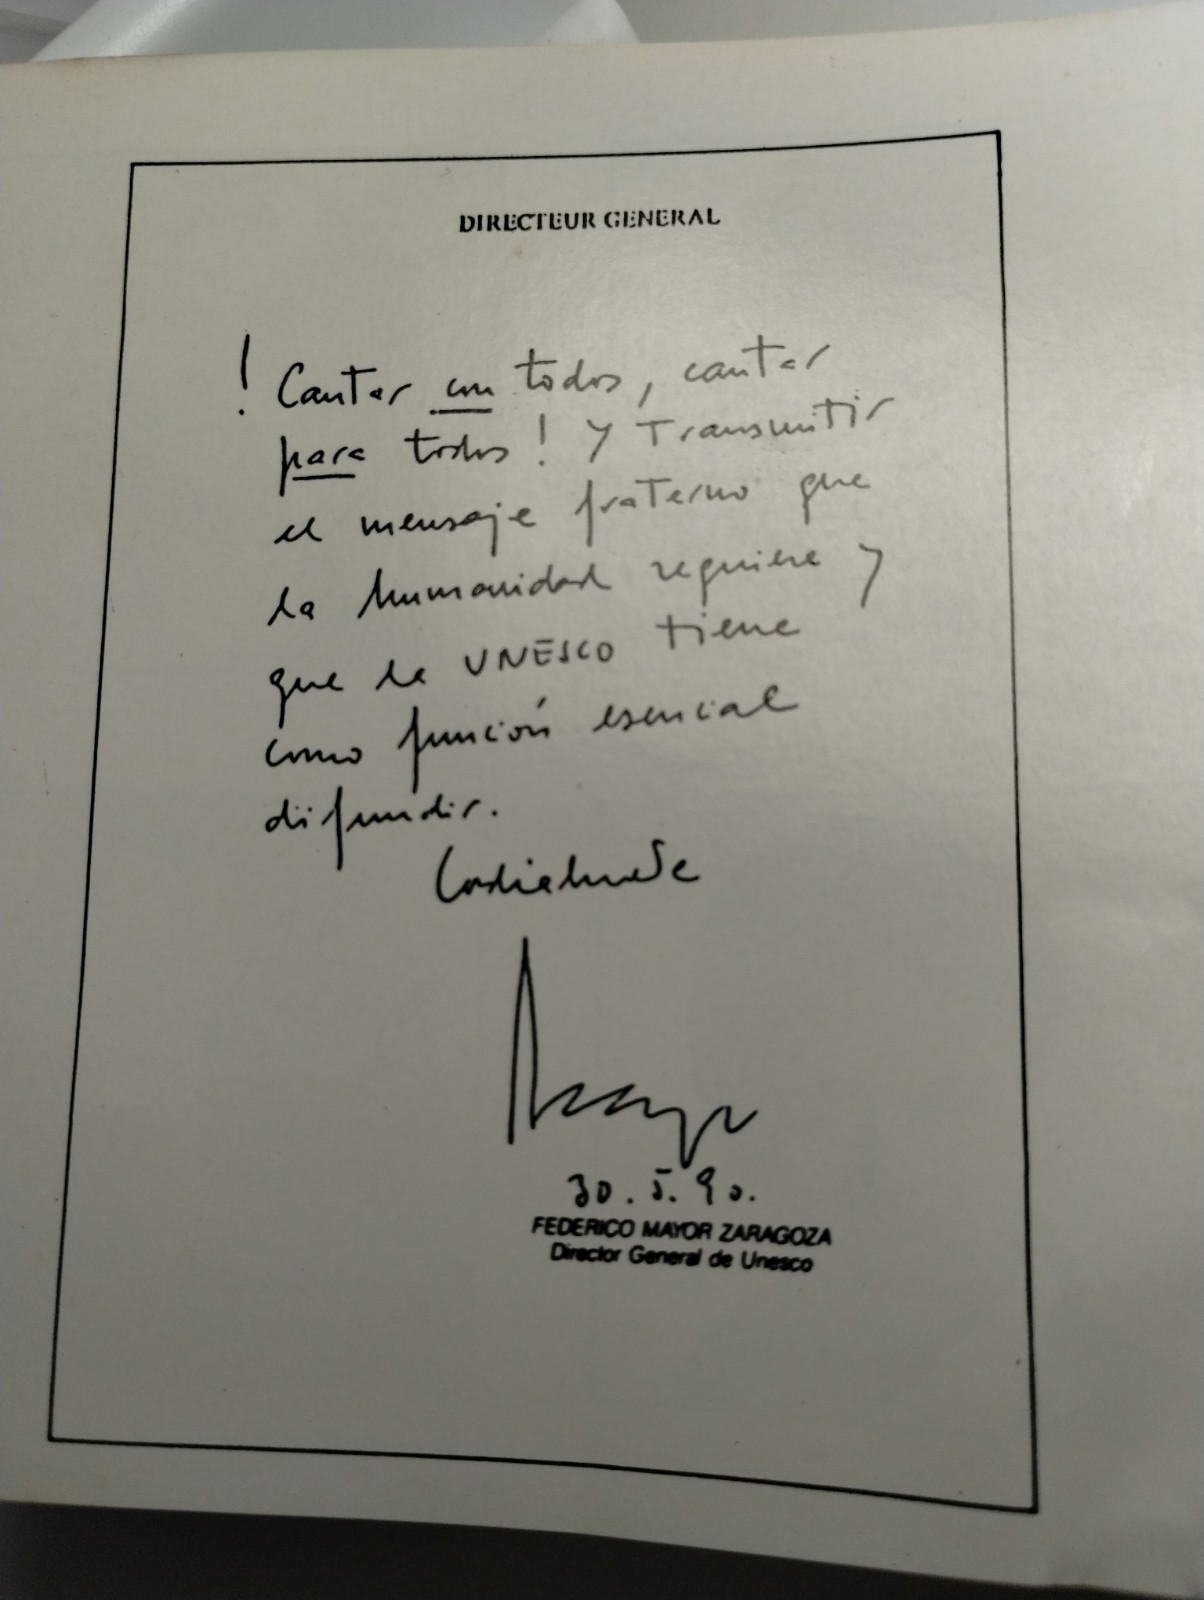 DIRECTEUR GENERAL
! Cantar con todos, cantar
para todos! Y transmitir
el mensaje fraterno que
la humanidad requiere y
que la UNESCO tiene
como función esencial
difundir.
Cordialmente
Mayor
30.5.90.
FEDERICO MAYOR ZARAGOZA
Director General de Unesco